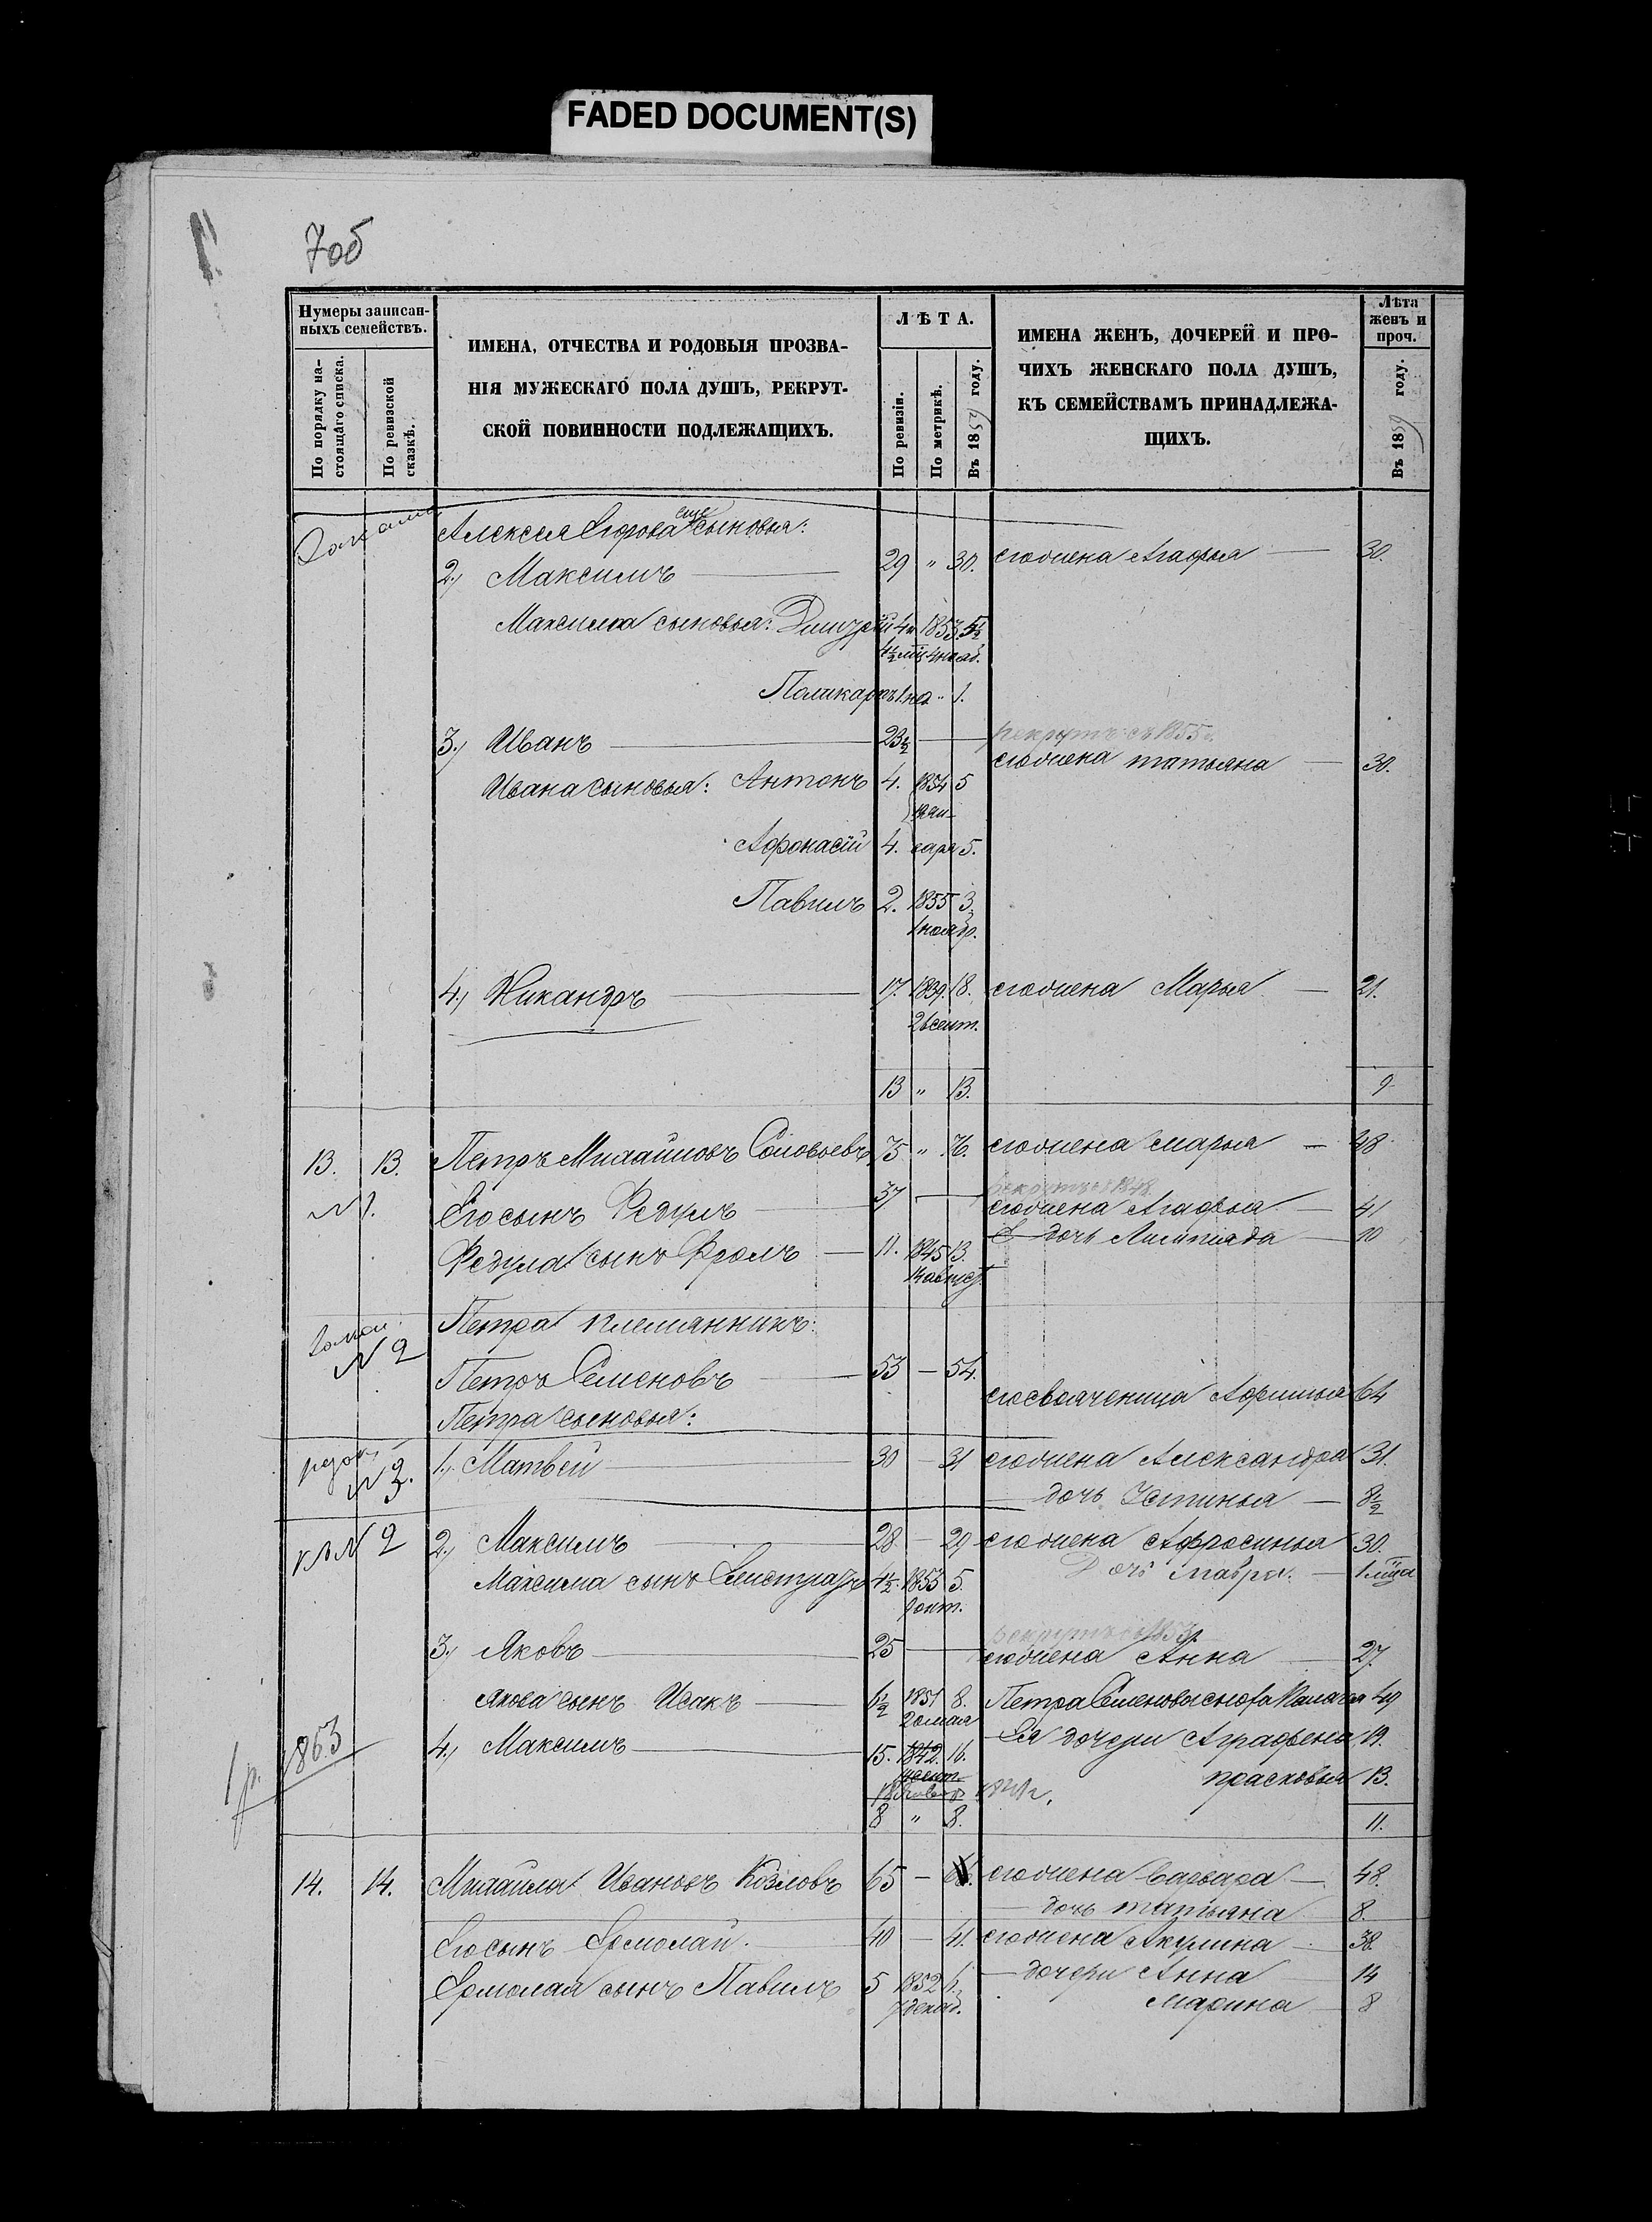 FADED DOCUMENT(S)
7об
Нумеры записан-
ныхъ семействъ.
По порядку на-
стоящаго списка.
По ревизской
сказкѣ.
ИМЕНА, ОТЧЕСТВА И РОДОВЫЯ ПРОЗВА-
НІЯ МУЖЕСКАГО ПОЛА ДУШЪ, РЕКРУТ-
СКОЙ ПОВИННОСТИ ПОДЛЕЖАЩИХЪ.
ЛѢТА.
По ревизіи.
По метрикѣ.
Въ 1859 году.
ИМЕНА ЖЕНЪ, ДОЧЕРЕЙ И ПРО-
ЧИХЪ ЖЕНСКАГО ПОЛА ДУШЪ,
КЪ СЕМЕЙСТВАМЪ ПРИНАДЛЕЖА-
ЩИХЪ.
Лѣта
женъ и
проч.
Въ 1859 году.
Алексея Егорова еще сыновья:
2.) Максимъ 29 " 30. егожена Агафья — 30.
Максима сыновья: Дмитрій 1853. 5½
Поликарпъ 1 нед " 1.
3.) Иванъ 23½ — рекрутъ съ 1855 г.
егожена татьяна — 30.
Ивана сыновья: Антонъ 4. 1854 5
Афонасій 4. 5.
Павилъ 2. 1855 3.
1 ноябр.
4.) Никандръ 17. 1839. 18. егожена Марья — 21.
26 сент.
13 " 13. 9
13. 13. Петръ Михайловъ Соловьевъ 75 " 76. егожена марья — 48
N 1. Егосынъ Федулъ 37 — рекрутъ съ 1848.
егожена Агафья — 41
Федула сынъ Фролъ — 11. 1845 13. дочь Лимпіада — 10
14 август.
Петра племянникъ:
N 2
Петръ Семеновъ 53 — 54.
егосвояченица Афимья 64
Петра сыновья:
N 3. 1.) Матвей 30 — 31 егожена Александра 31.
дочь Устинья — 8½
N 2 2.) Максимъ 28 — 29 егожена Афросинья 30.
Максима сынъ Елистратъ 4½. 1853 5. Дочь мавра. — 1 мца
3.) Яковъ 25 — рекрутъ съ 1853 г.
егожена Анна — 27.
Якова сынъ Исакъ — 6½ 1851 8. Петра Семенова сноха Палагея 49
20 мая
1863 4.) Максимъ 15. 1842. 16. Ея дочери Аграфена 19.
прасковья 13.
8 " 8. 11.
14. 14. Михайла Ивановъ Козловъ 65 — 66. егожена варвара — 48.
дочь татьяна 8.
Егосынъ Ермолай. 40 — 41. егожена Акулина — 38.
Ермолая сынъ Павилъ 5 1852 6. — дочери Анна 14
7 декаб. Марина — 8